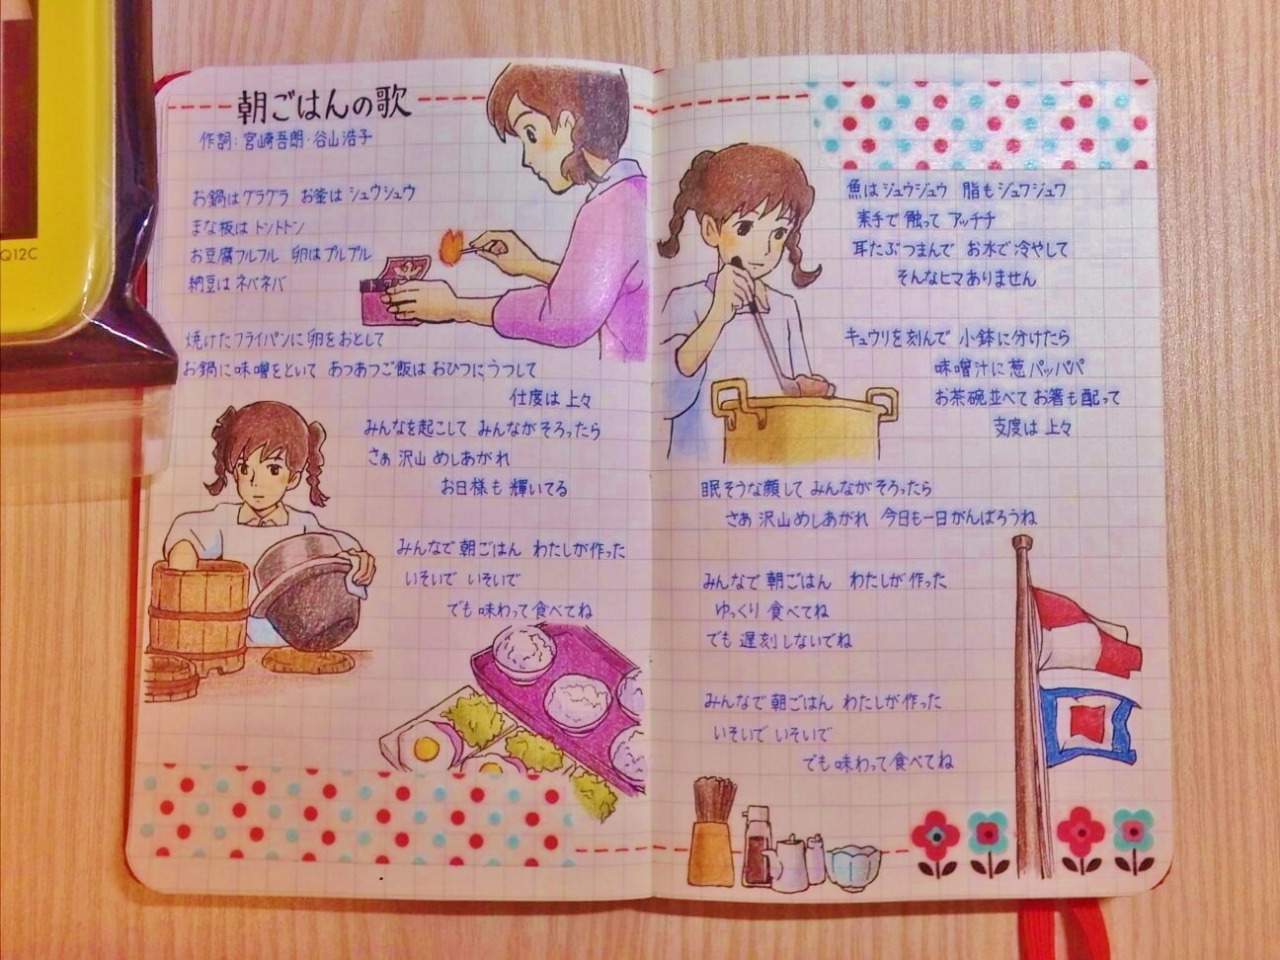 Q12C
朝ごはんの歌
作詞:宮崎吾朗・谷山浩子
お鍋はグラグラ お釜はシュウシュウ
まな板はトントン
お豆腐フルフル 卵はプルプル
納豆はネバネバ
焼けたフライパンに卵をおとして
お鍋に味噌をといて あつあつご飯はおひつにうつして
仕度は上々
みんなを起こして みんながそろったら
さぁ 沢山めしあがれ
お日様も輝いてる
みんなで朝ごはん わたしが作った
いそいで いそいで
でも味わって食べてね
魚はジュウジュウ 脂もジュワジュワ
素手で触って アッチチ
耳たぶつまんで お水で冷やして
そんなヒマありません
キュウリを刻んで 小鉢に分けたら
味噌汁に葱パッパパ
お茶碗並べてお箸も配って
支度は上々
眠そうな顔して みんながそろったら
さあ 沢山めしあがれ 今日も一日がんばろうね
みんなで朝ごはん わたしが作った
ゆっくり食べてね
でも遅刻しないでね
みんなで朝ごはん わたしが作った
いそいで いそいで
でも味わって食べてね